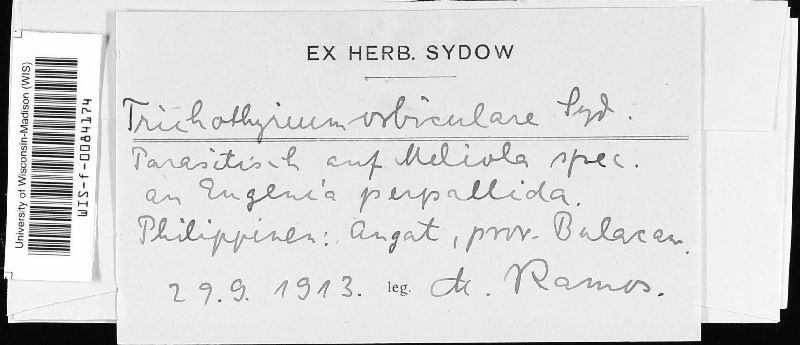 EX HERB. SYDOW
Trichothyrium orbiculare Syd.
Parasitisch auf Meliola spec.
an Eugenia perpallida.
Philippinen: Angat, prov. Bulacan.
29.9. 1913. leg. M. Ramos.
University of Wisconsin-Madison (WIS)
WIS-f-0084174